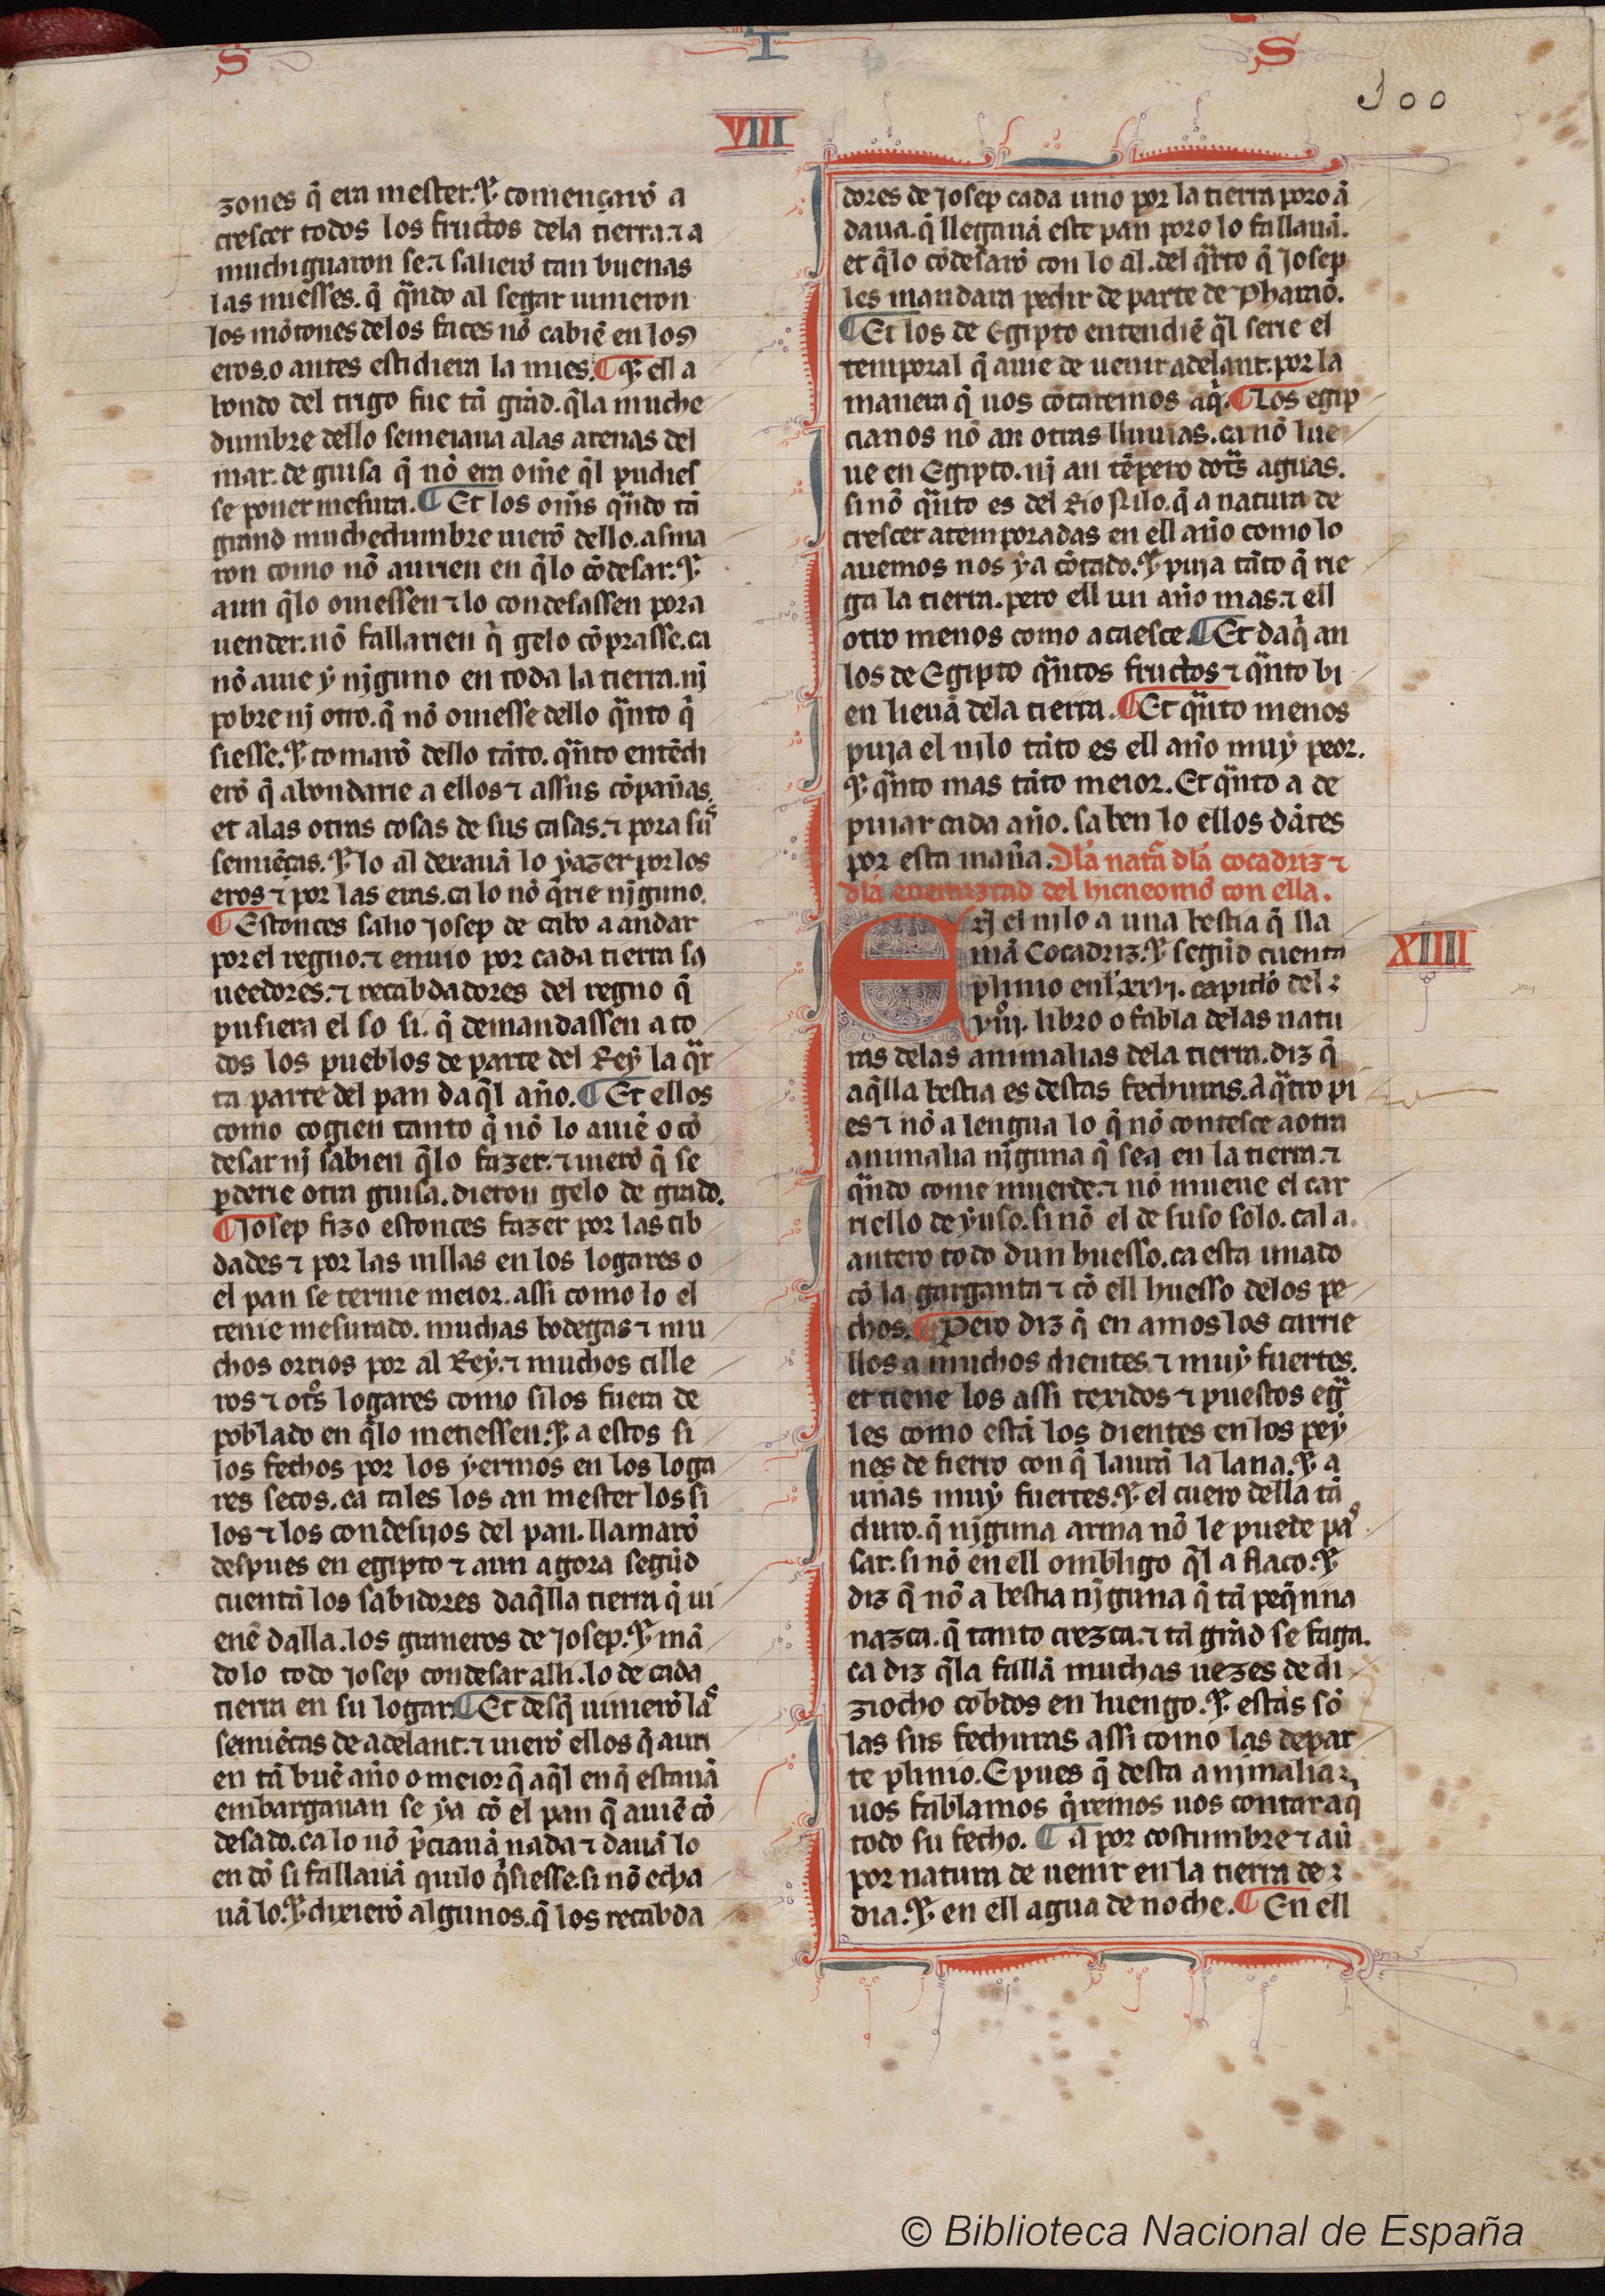 S
I
S
100
VIII
zones q̃ era mester. ⁊ començarõ a
crescer todos los fructos dela tierra. ⁊ a
muchiguaron se. ⁊ salierõ tan buenas
las miesses. q̃ q̃ndo al segar uinieron
los mõtones delos faces nõ cabiẽ en los
eros. o antes estidiera la mies. ¶ ⁊ ell a
bondo del trigo fue tã grãd. q̃la muche
dumbre dello semeiaua alas arenas del
mar. de guisa q̃ nõ era om̃e q̃l pudies
se poner mesura. ¶ Et los om̃s q̃ndo tã
grand muchedumbre uierõ dello. asma
ron como nõ aurien en q̃lo cõdesar. ⁊
aun q̃lo ouiessen ⁊ lo condesassen pora
uender. nõ fallarien q̃ gelo cõprasse. ca
nõ auie ẏ nĩguno en toda la tierra. nj
pobre nj otro. q̃ nõ ouiesse dello q̃nto q̃
siesse. ⁊ tomarõ dello tãto. q̃nto entẽdi
erõ q̃ abondarie a ellos ⁊ assus cõpañas.
et alas otras cosas de sus casas. ⁊ pora sus
semiẽças. ⁊ lo al dexauã lo ẏazer por los
eros ⁊ por las eras. ca lo nõ q̃rie nĩguno.
¶ Estonces salio Josep de cabo a andar
por el regno. ⁊ enuio por cada tierra sos
ueedores. ⁊ recabdadores del regno q̃
pusiera el so si. q̃ demandassen a to
dos los pueblos de parte del Reẏ la q̃r
ta parte del pan daq̃l año. ¶ Et ellos
como cogien tanto q̃ nõ lo auiẽ o cõ
desar nj sabien q̃lo fazer. ⁊ uierõ q̃ se
ꝑderie otra guisa. dieron gelo de grado.
¶ Josep fizo estonces fazer por las cib
dades ⁊ por las uillas en los logares o
el pan se ternie meior. assi como lo el
tenie mesurado. muchas bodegas ⁊ mu
chos orrios por al Reẏ. ⁊ muchos cille
ros ⁊ otrõs logares como silos fuera de
poblado en q̃lo metiessen. ⁊ a estos si
los fechos por los ẏermos en los loga
res secos. ca tales los an mester los si
los ⁊ los condesijos del pan. llamarõ
despues en egipto ⁊ aun agora segũd
cuentã los sabidores daq̃lla tierra q̃ ui
enẽ dalla. los graneros de Josep. ⁊ mã
do lo todo Josep condesar alli. lo de cada
tierra en su logar. ¶ Et desq̃ uinierõ las
semiẽças de adelant. ⁊ uierõ ellos q̃ auri
en tã buẽ año o meior q̃ aq̃l en q̃ estauã
embargauan se ẏa cõ el pan q̃ auiẽ cõ
desado. ca lo nõ p̃ciauã nada ⁊ dauã lo
en dõ si fallauã quilo q̃siesse. si nõ echa
uã lo. ⁊ dixierõ algunos. q̃ los recabda
dores de Josep cada uno por la tierra poro ã
daua. q̃ llegauã este pan poro lo fallauã.
et q̃lo cõdesarõ con lo al. del q̃rto q̃ Josep
les mandara pechr de parte de Pharaõ.
¶ Et los de Egipto entendiẽ q̃l serie el
temporal q̃ auie de uenir adelant. por la
manera q̃ uos cõtaremos aq̃. ¶ Los egip
cianos nõ an otras lluuias. ca nõ llue
ue en Egipto. nj an tẽpero dotãs aguas.
si nõ q̃nto es del Rio Nilo. q̃ a natura de
crescer a temporadas en ell año como lo
auemos nos ẏa cõtado. ⁊ puja tãto q̃ rie
ga la tierra. pero ell un año mas. ⁊ ell
otro menos como acaesce. ¶ Et daq̃ an
los de Egipto q̃ntos fructos ⁊ q̃nto bi
en lieuã dela tierra. ¶ Et q̃nto menos
puja el nilo tãto es ell año muẏ peor.
⁊ q̃nto mas tãto meior. Et q̃nto a de
puiar cada año. saben lo ellos dãtes
por esta mañra. Dla natã dla cocadriz ⁊
dla enemiztad del hicneomõ con ella.
XIIII
En el nilo a una bestia q̃ lla
mã Cocadriz. ⁊ segũd cuenta
plinio enl xxvj. capitlo del
viij. libro o fabla delas natu
ras delas animalias dela tierra. diz q̃
aq̃lla bestia es destas fechuras. a q̃tro pi
es ⁊ nõ a lengua lo q̃ nõ contesce a otra
animalia nĩguna q̃ sea en la tierra. ⁊
q̃ndo come muerde. ⁊ nõ mueue el car
riello de ẏuso. si nõ el de suso solo. ca l a
antero todo dun huesso. ca esta unado
cõ la garganta ⁊ cõ ell huesso delos pe
chos. ¶ Pero diz q̃ en amos los carrie
llos a muchos dientes. ⁊ muẏ fuertes.
et tiene los assi texidos ⁊ puestos eg̃
les como estã los dientes en los peẏ
nes de fierro con q̃ laurã la lana. ⁊ a
uñas muẏ fuertes. ⁊ el cuero della tã
duro. q̃ nĩguna arma nõ le puede pas
sar. si nõ en ell ombligo q̃l a flaco. ⁊
diz q̃ nõ a bestia nĩguna q̃ tã peq̃nna
nazca. q̃ tanto crezca. ⁊ tã grãd se faga.
ca diz q̃la fallã muchas uezes de di
ziocho cobdos en luengo. ⁊ estas sõ
las sus fechuras assi como las depar
te plinio. E pues q̃ desta animalia
uos fablamos q̃remos uos contar aq̃
todo su fecho. ¶ A por costumbre ⁊ aũ
por natura de uenir en la tierra de
dia. ⁊ en ell agua de noche. ¶ En ell
© Biblioteca Nacional de España